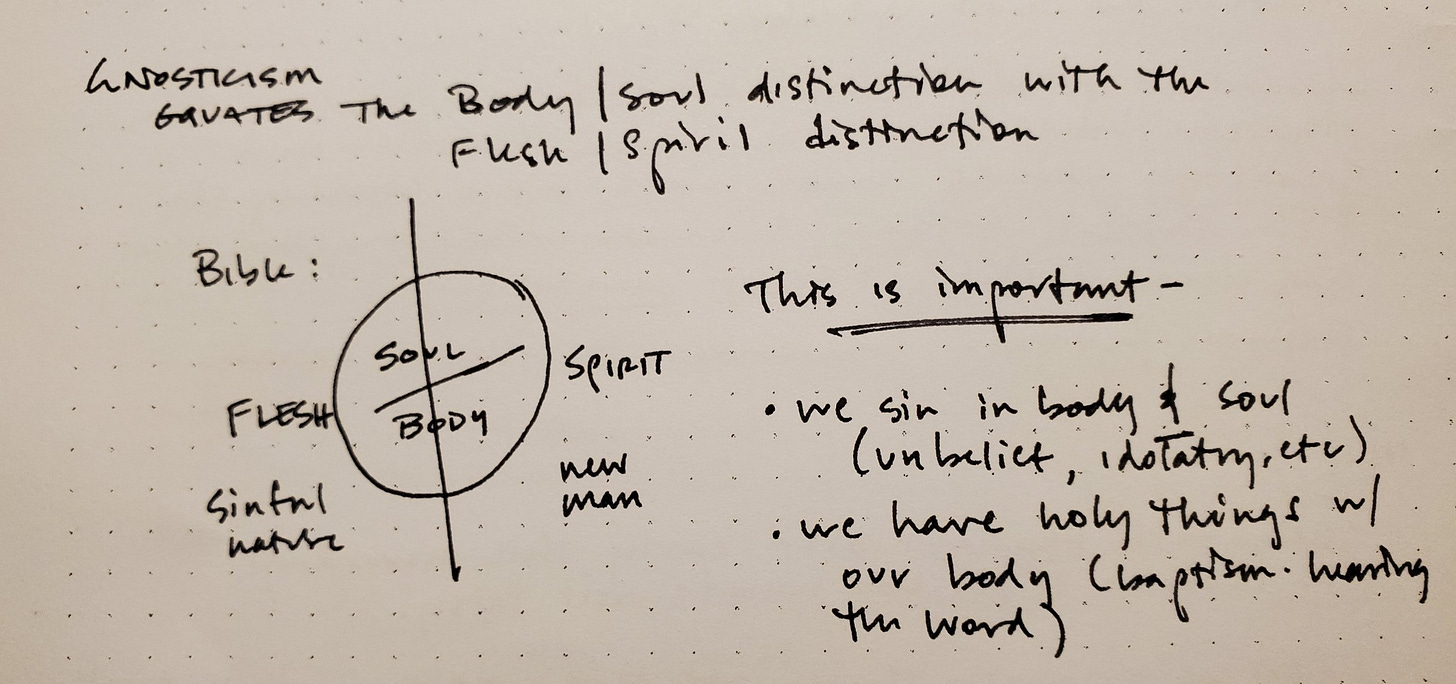 GNOSTICISM
EQUATES The Body / soul distinction with the
Flesh / Spirit distinction
Bible:
SOUL
SPIRIT
FLESH
BODY
new
man
Sinful
nature
This is important -
• we sin in body & soul
(unbelief, idolatry, etc)
• we have holy things w/
our body (baptism. hearing
the word)